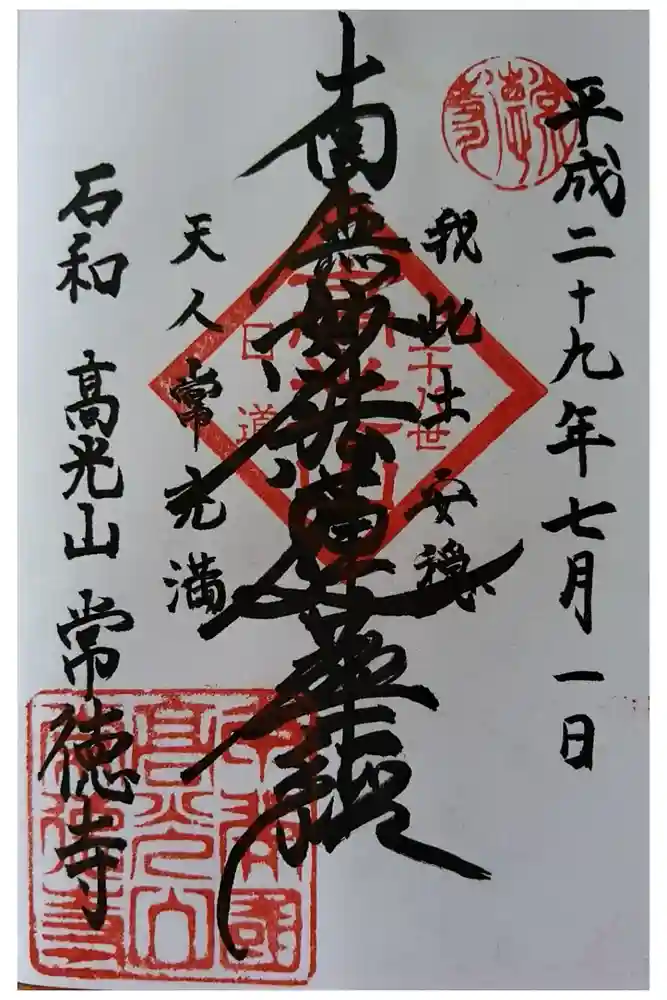 平成二十九年七月一日
我此土安穏
南無妙法蓮華経
天人常充満
石和 高光山 常徳寺
高光山